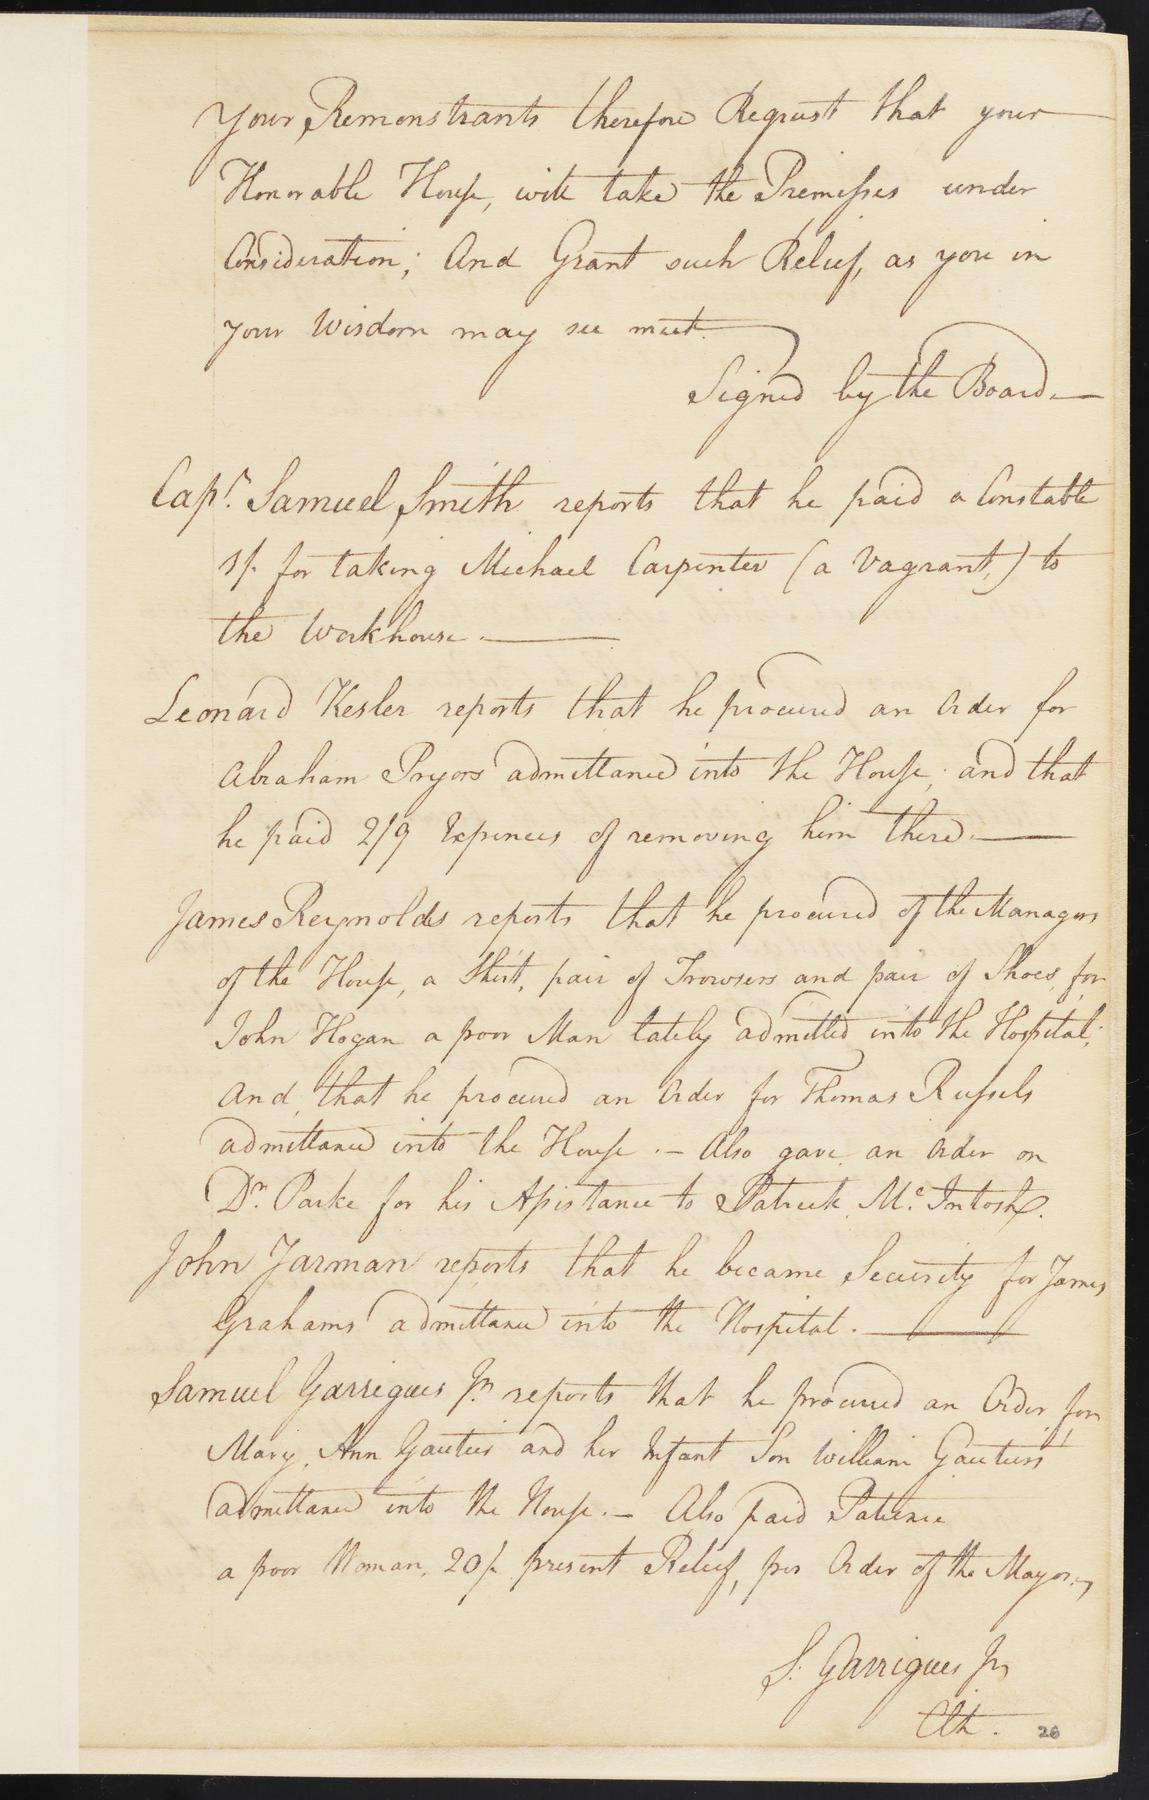 Your Remonstrants therefore Request that your
Honorable House, will take the Premisses under
Consideration; And Grant such Relief, as you in
your Wisdom may see meet.
Signed by the Board.
Capt. Samuel Smith reports that he paid a Constable
1/. for taking Michael Carpenter (a Vagrant,) to
the Workhouse.
Leonard Kesler reports that he procured an Order for
Abraham Pryors admittance into the House; and that
he paid 2/9 Expences of removing him there.
James Reynolds reports that he procured of the Managers
of the House, a Shirt, pair of Trowsers and pair of Shoes, for
John Hogan a poor Man lately admitted into the Hospital;
And, that he procured an Order for Thomas Russels
admittance into the House. — Also gave an Order on
Dr. Parke for his Assistance to Patrick McIntosh.
John Jarman reports that he became Security for James
Grahams admittance into the Hospital.
Samuel Garrigues Jr. reports that he procured an Order for
Mary Ann Gautier and her Infant Son William Gautiers
admittance into the House. — Also paid Patience
a poor Woman, 20/. present Relief, per Order of the Mayor.
S. Garrigues Jr
Clk.
26